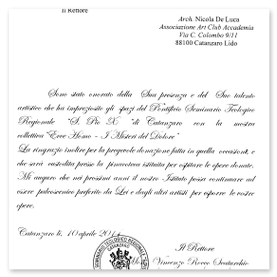 Il Rettore
Arch. Nicola De Luca
Associazione Art Club Accademia
Via C. Colombo 9/11
88100 Catanzaro Lido
Sono stato onorato della Sua presenza e del Suo talento
artistico che ha impreziosito gli spazi del Pontificio Seminario Teologico
Regionale "S. Pio X" di Catanzaro con la mostra
collettiva "Ecce Homo - I Misteri del Dolore"
La ringrazio inoltre per la pregevole donazione fatta in quella occasione, e
che sarà custodita presso la pinacoteca istituita per ospitare le opere donate.
Mi auguro che nei prossimi anni il nostro Istituto possa continuare ad
essere palcoscenico preferito da Lei e dagli altri artisti per esporre le vostre
opere.
Catanzaro lì, 10 aprile 2014
Il Rettore
Vincenzo Rocco Scaturchio
SEMINARIO TEOLOGICO REGIONALE